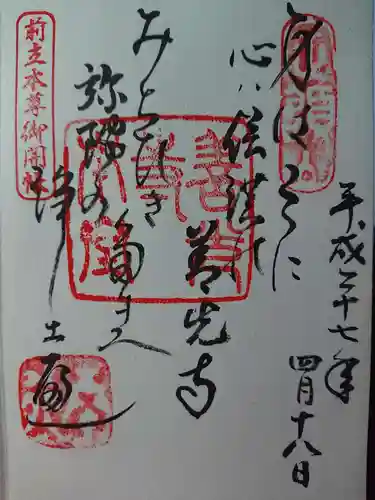 平成二十七年
四月十八日
身はこゝに
心ハ信濃の
善光寺
みちびき
給へ
弥陀の
浄土へ
前立本尊御開帳